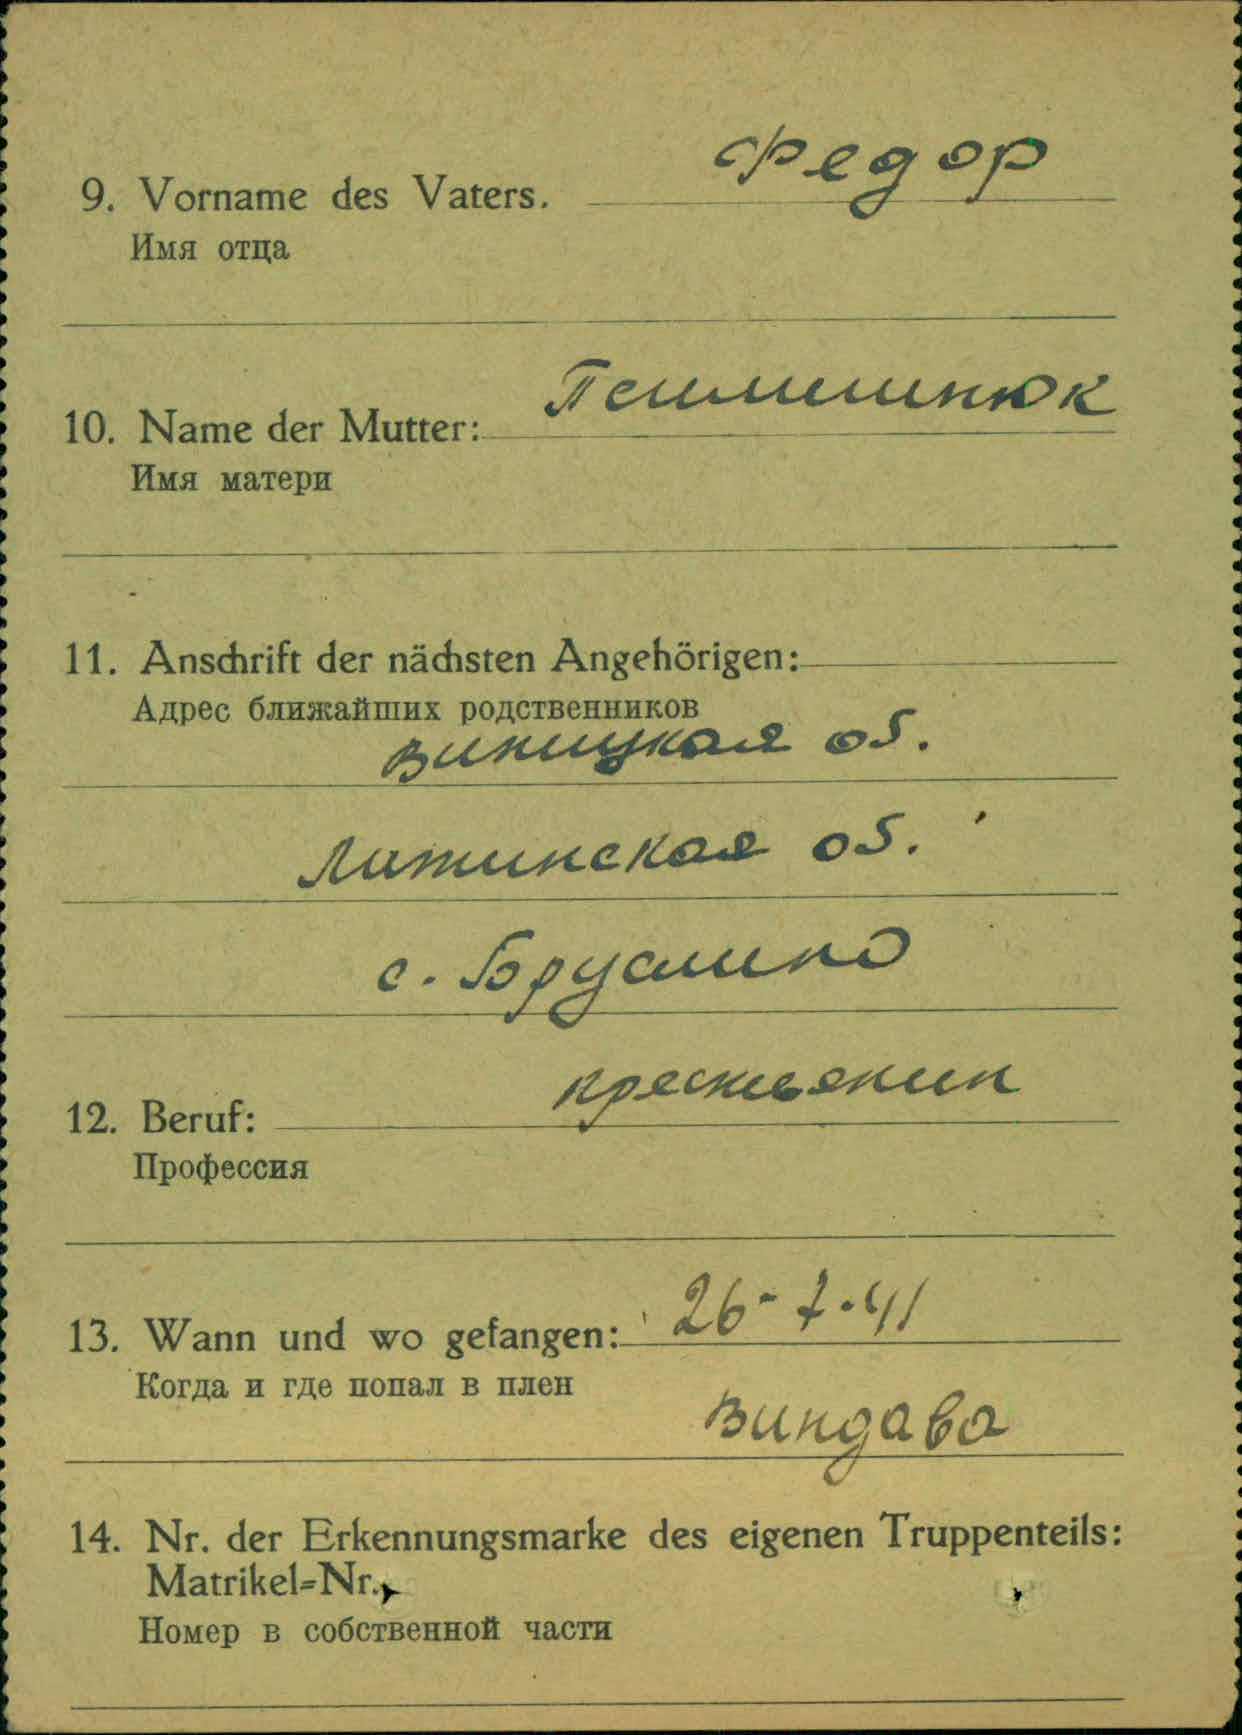 9. Vorname des Vaters. Федор
Имя отца
10. Name der Mutter:
Имя матери
11. Anschrift der nächsten Angehörigen:
Адрес ближайших родственников
Виницкая об.
Литинская об.
с. Бруслино
12. Beruf: крестьянин
Профессия
13. Wann und wo gefangen: 26-7-41
Когда и где попал в плен
Виндава
14. Nr. der Erkennungsmarke des eigenen Truppenteils:
Matrikel=Nr.
Номер в собственной части